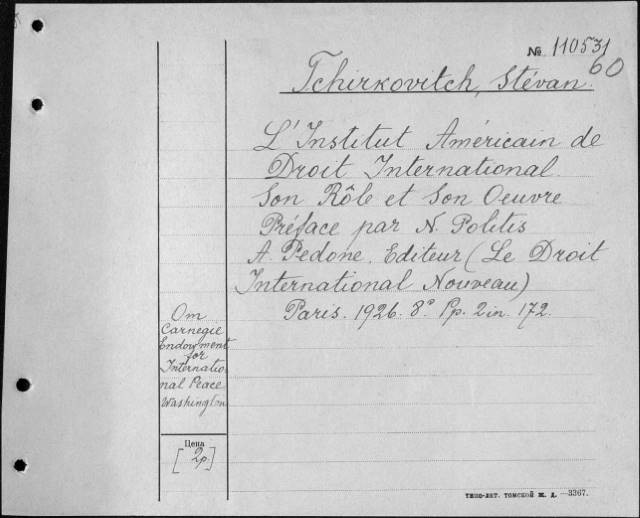 № 110531
60
Tchirkovitch, Stévan.
L'Institut Américain de
Droit International.
Son Rôle et Son Oeuvre
Préface par N. Politis
A. Pedone. Editeur (Le Droit
International Nouveau)
Paris. 1926. 8° Pp. 2 in. 172.
От
Carnegie
Endowment
for
Internatio
nal Peace
Washington
Цѣна
[2р.]
ТИПО-ЛИТ. ТОМСКОЙ Ж. Д. —3367.